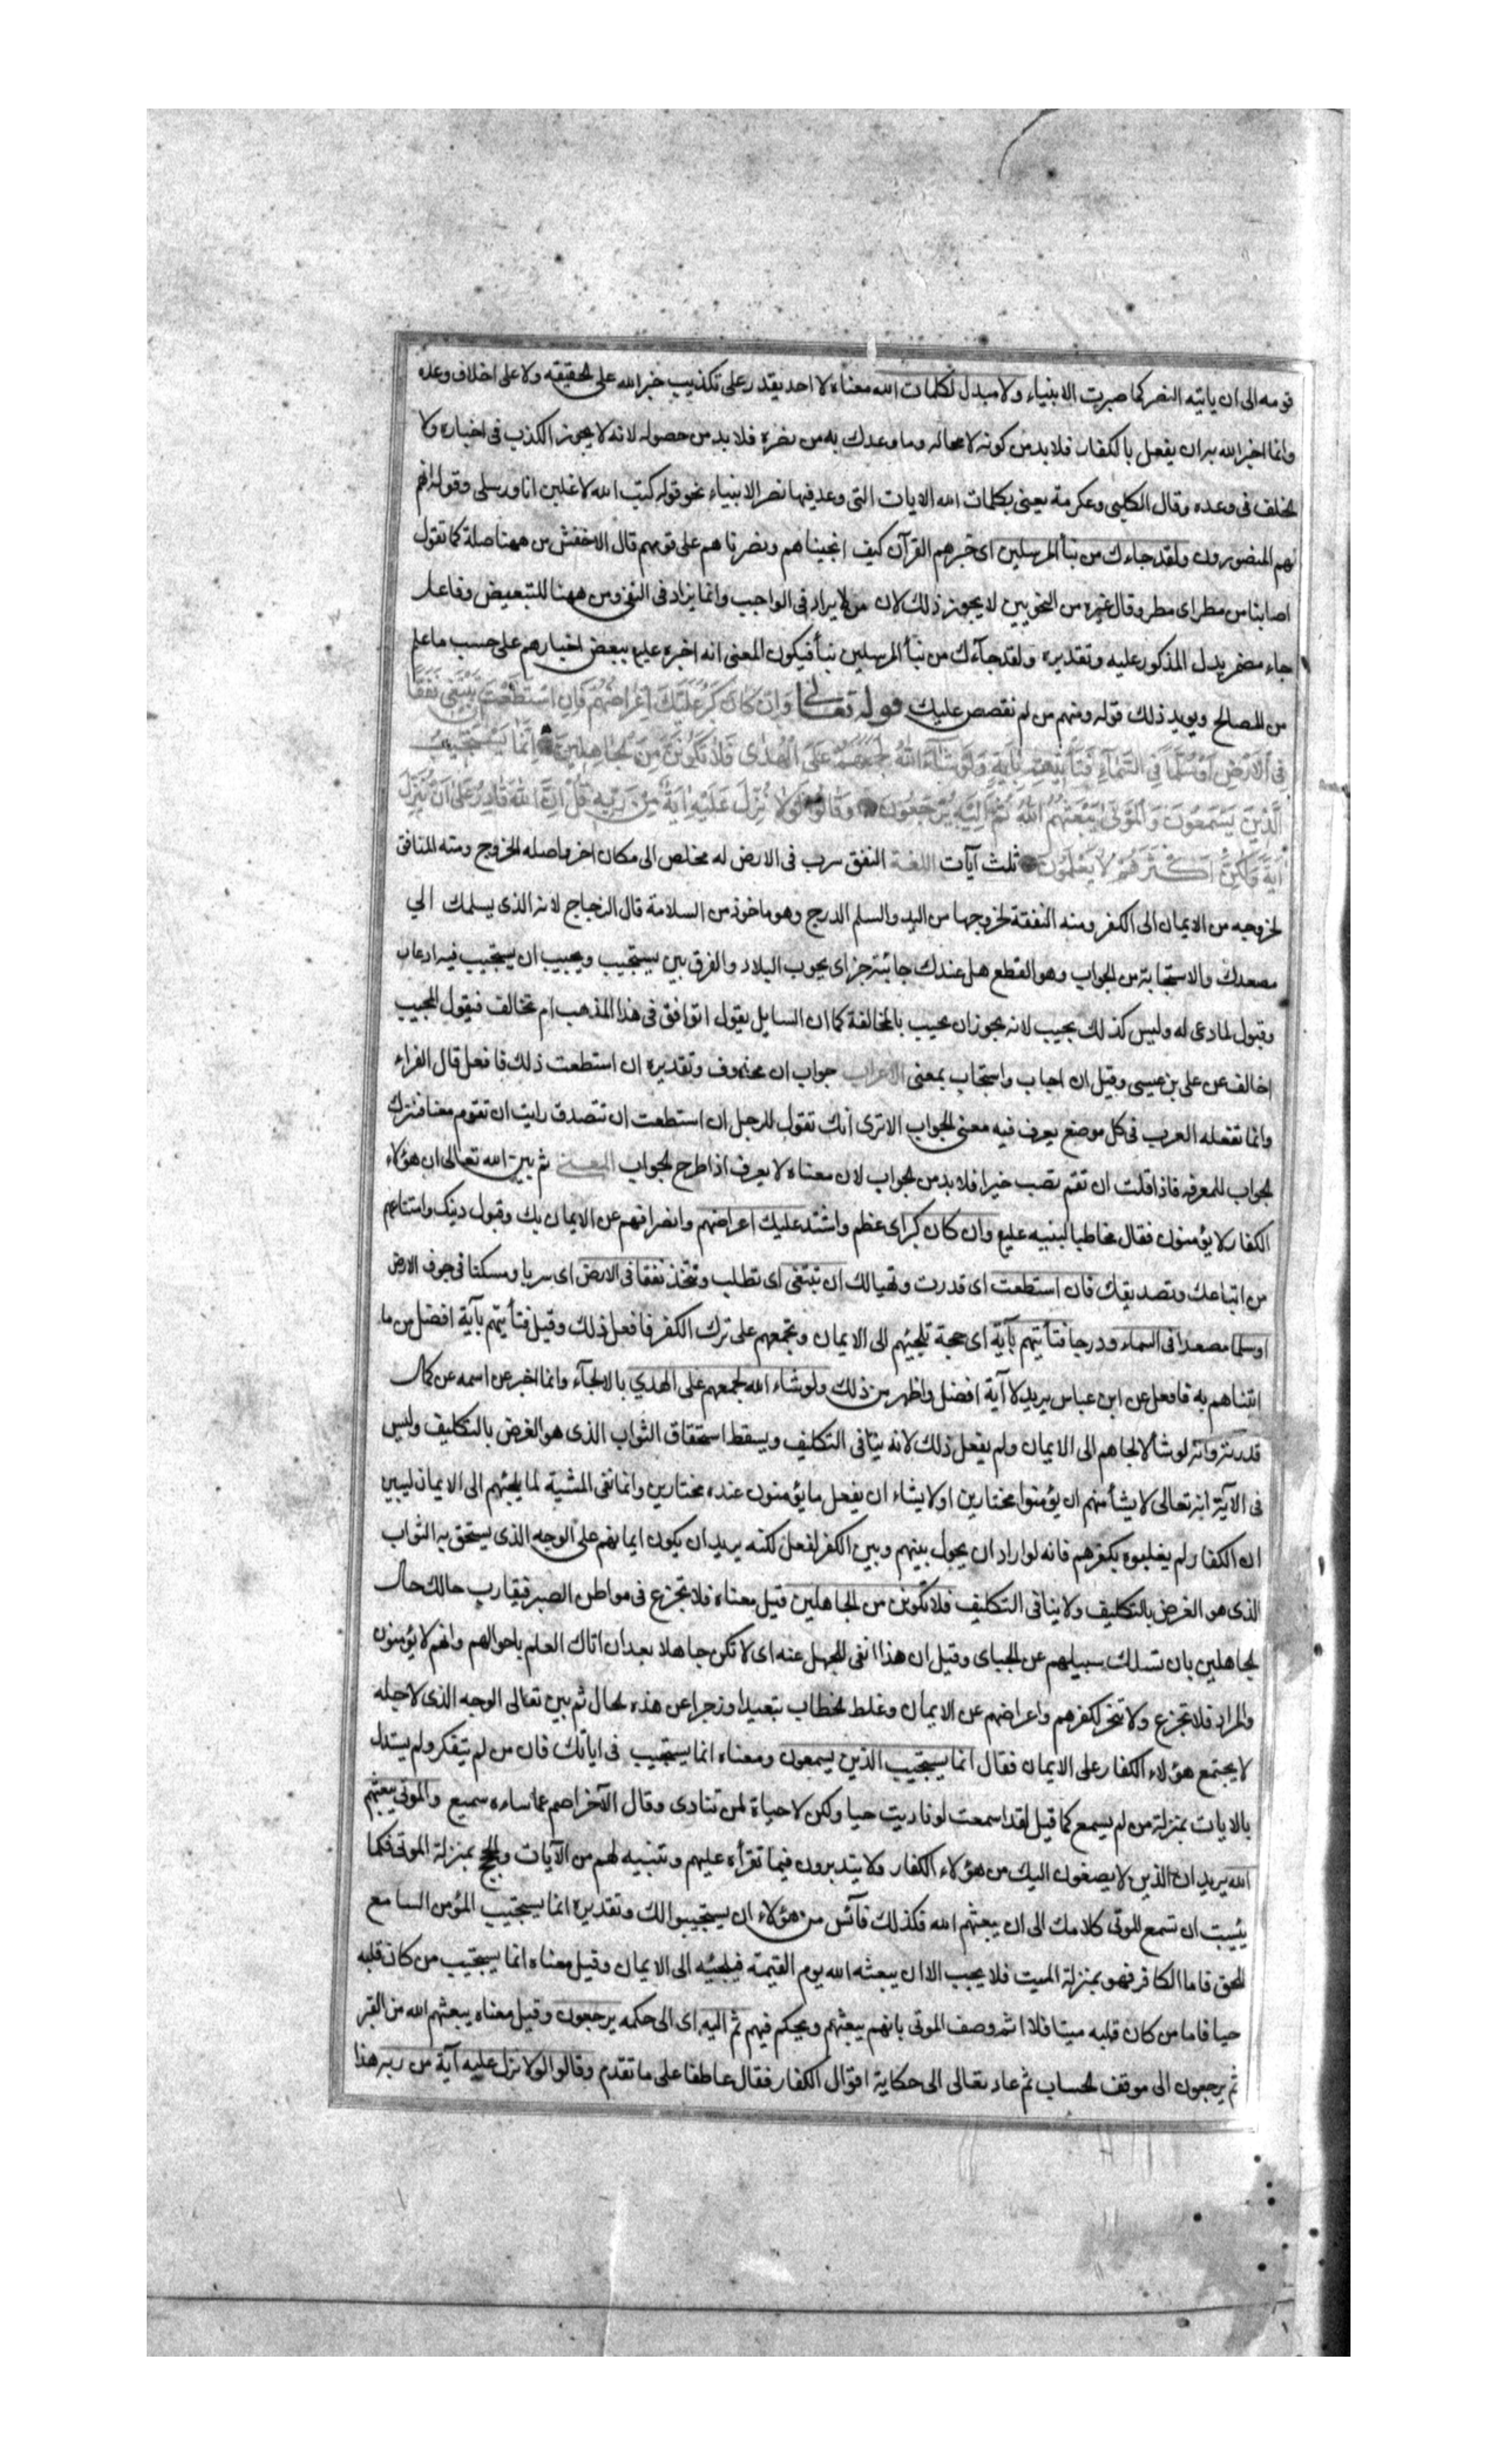 قومه الى ان ياتيه النصر كما صبرت الانبياء ولا مبدل لكلمات الله معناه لا احد يقدر على تكذيب خبر الله على الحقيقة ولا على اخلاف وعده
وانما اخبر الله به ان يفعل بالكفار فلابد من كونه لا محاله وما وعدك به من نصره فلا بد من حصوله لانه لا يجوز الكذب فى اخباره ولا
الخلف فى وعده وقال الكلبى وعكرمة يعنى بكلمات الله الايات التى وعد فيها نصر الانبياء نحو قوله كتب الله لاغلبن انا ورسلى وقوله انهم
لهم المنصورون ولقد جاءك من نبأ المرسلين اى خبرهم القرآن كيف انجيناهم ونصرناهم على قومهم قال الاخفش من ههنا صلة كما تقول
اصابنا من مطر اى مطر وقال غيره من النحويين لا يجوز ذلك لان من لا يزاد فى الواجب وانما يزاد فى النفى ومن ههنا للتبعيض وفاعل
جاء مضمر يدل المذكور عليه وتقديره ولقد جآءك من نبأ المرسلين نبأ فيكون المعنى انه اخبره عليه ببعض اخبارهم على حسب ما علم
من المصالح ويويد ذلك قوله ومنهم من لم نقصص عليك قوله تعالى وَاِنْ كَانَ كَبُرَ عَلَيْكَ اِعْرَاضُهُمْ فَاِنِ اسْتَطَعْتَ اَنْ تَبْتَغِىَ نَفَقًا
فِى الْاَرْضِ اَوْ سُلَّمًا فِى السَّمَآءِ فَتَاْتِيَهُمْ بِاٰيَةٍ وَلَوْ شَآءَ اللّٰهُ لَجَمَعَهُمْ عَلَى الْهُدٰى فَلَا تَكُونَنَّ مِنَ الْجَاهِلِينَ اِنَّمَا يَسْتَجِيبُ
الَّذِينَ يَسْمَعُونَ وَالْمَوْتٰى يَبْعَثُهُمُ اللّٰهُ ثُمَّ اِلَيْهِ يُرْجَعُونَ وَقَالُوا لَوْلَا نُزِّلَ عَلَيْهِ اٰيَةٌ مِنْ رَبِّهِ قُلْ اِنَّ اللّٰهَ قَادِرٌ عَلٰى اَنْ يُنَزِّلَ
اٰيَةً وَلٰكِنَّ اَكْثَرَهُمْ لَا يَعْلَمُونَ ثلث آيات اللغة النفق سرب فى الارض له مخلص الى مكان اخر واصله الخروج ومنه المنافق
لخروجه من الايمان الى الكفر ومنه النفقة لخروجها من اليد والسلم الدرج وهو ماخوذ من السلامة قال الزجاج لانه الذى يسلمك الى
مصعدك والاستجابة من الجواب وهو القطع هل عندك جائبة خبر اى يجوب البلاد والفرق بين يستجيب ويجيب ان يستجيب فيه اذعان
وقبول لما دعى له وليس كذلك يجيب لانه يجوز ان يجيب بالمخالفة كما ان السايل يقول اتوافق فى هذا المذهب ام تخالف فيقول المجيب
اخالف عن على بن عيسى وقيل ان اجاب واستجاب بمعنى الاعراب جواب ان محذوف وتقديره ان استطعت ذلك فافعل قال الفراء
وانما تفعله العرب فى كل موضع يعرف فيه معنى الجواب الا ترى انك تقول للرجل ان استطعت ان تتصدق رايت ان تقوم معنا فتترك
الجواب للمعرفة فاذا قلت ان تقم تصب خيرا فلا بد من الجواب لان معناه لا يعرف اذا طرح الجواب المعنى ثم بين الله تعالى ان هؤلاء
الكفار لا يؤمنون فقال مخاطبا لنبيه عليع وان كان كبر اى عظم واشتد عليك اعراضهم وانصرافهم عن الايمان بك وقبول دينك وامتناعهم
من اتباعك وتصديقك فان استطعت اى قدرت وتهيا لك ان تبتغى اى تطلب وتتخذ نفقا فى الارض اى سربا ومسكنا فى جوف الارض
او سلما مصعدا فى السماء ودرجا فتأتيهم بآية اى حجة تلجئهم الى الايمان وتجمعهم على ترك الكفر فافعل ذلك وقيل فتأتيهم بآية افضل من ما
اتيناهم به فافعل عن ابن عباس يريد لا آية افضل واظهر من ذلك ولو شاء الله لجمعهم على الهدي بالالجآء وانما اخبر عن اسمه عن كمال
قدرته وانه لو شأ لالجاهم الى الايمان ولم يفعل ذلك لانه ينافى التكليف ويسقط استحقاق الثواب الذى هو الغرض بالتكليف وليس
فى الآية انه تعالى لا يشأ منهم ان يؤمنوا مختارين او لا يشاء ان يفعل ما يؤمنون عنده مختارين وانما نفى المشية لما يلجئهم الى الايمان ليبين
ان الكفار لم يغلبوه بكفرهم فانه لو اراد ان يحول بينهم وبين الكفر لفعل لكنه يريد ان يكون ايمانهم على الوجه الذى يستحق به الثواب
الذى هو الغرض بالتكليف ولا ينافى التكليف فلا تكونن من الجاهلين قيل معناه فلا تجزع فى مواطن الصبر فيقارب حالك حال
الجاهلين بان تسلك سبيلهم عن الجباى وقيل ان هذا نفى للجهل عنه اى لا تكن جاهلا بعد ان اتاك العلم باحوالهم وانهم لا يؤمنون
والمراد فلا تجزع ولا تحزن لكفرهم واعراضهم عن الايمان وغلظ الخطاب تبعيدا وزجرا عن هذه الحال ثم بين تعالى الوجه الذى لاجله
لا يجتمع هؤلاء الكفار على الايمان فقال انما يستجيب الذين يسمعون ومعناه انما يستجيب فى اياتك فان من لم يتفكر ولم يستدل
بالايات بمنزلة من لم يسمع كما قيل لقد اسمعت لو ناديت حيا ولكن لا حياة لمن تنادى وقال الآخر اصم عما ساءه سميع والموتى يبعثهم
الله يريد ان الذين لا يصغون اليك من هؤلاء الكفار ولا يتدبرون فيما تقرأه عليهم وتبينه لهم من الآيات والحجج بمنزلة الموتى فكما
يئست ان تسمع الموتى كلامك الى ان يبعثهم الله فكذلك فآئس من هؤلاء ان يستجيبوا لك وتقديره انما يستجيب المؤمن السامع
للحق فاما الكافر فهو بمنزلة الميت فلا يجيب الا ان يبعثه الله يوم القيمة فيلجئه الى الايمان وقيل معناه انما يستجيب من كان قلبه
حيا فاما من كان قلبه ميتا فلا ثم وصف الموتى بانهم يبعثهم ويحكم فيهم ثم اليه اى الى حكمه يرجعون وقيل معناه يبعثهم الله من القبر
ثم يرجعون الى موقف الحساب ثم عاد تعالى الى حكاية اقوال الكفار فقال عاطفا على ما تقدم وقالوا لولا نزل عليه آية من ربه هذا